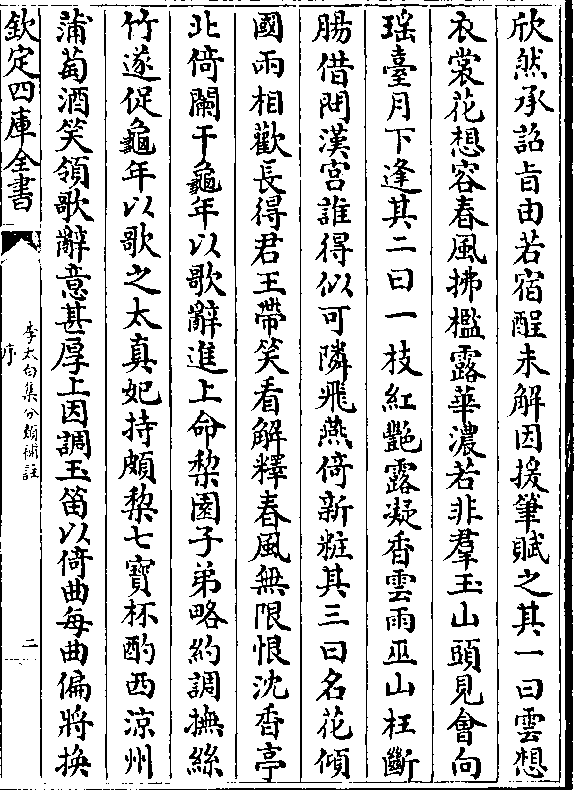 欣然承詔旨由若宿酲未解因援筆賦之其一曰雲想
衣裳花想容春風拂檻露華濃若非羣玉山頭見會向
瑶臺月下逢其二曰一枝紅艷露凝香雲雨巫山枉斷
腸借問漢宮誰得似可隣飛燕倚新粧其三曰名花傾
國兩相歡長得君王帶笑看解釋春風無限恨沈香亭
北倚闌干龜年以歌辭進上命棃園子弟略約調撫絲
竹遂促龜年以歌之太真妃持頗棃七寶杯酌西涼州
蒲萄酒笑領歌辭意甚厚上因調玉笛以倚曲每曲偏將換
欽定四庫全書
李太白集分類補註
序
二